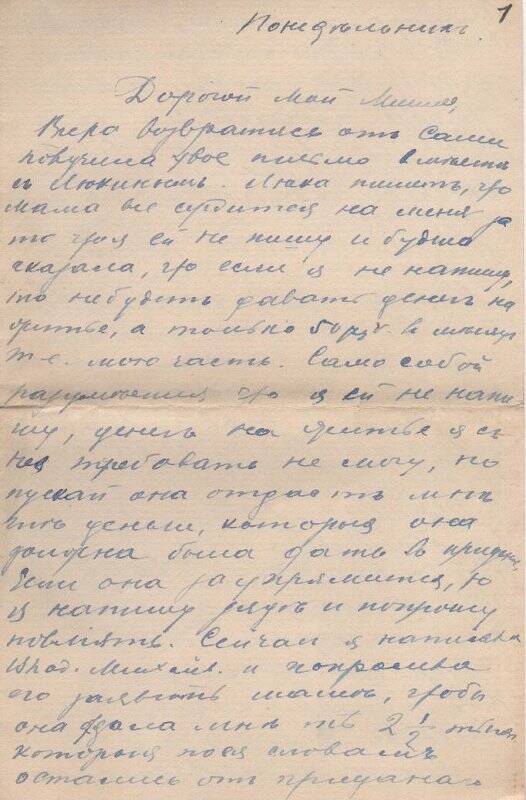 1
Понедѣльникъ.
Дорогой мой Миша,
Вчера возвратись отъ Саши
получила твое письмо вмѣстѣ
съ Люкинымъ. Люка пишетъ, что
мама все сердится на меня за
то что я ей не пишу и будто
сказала, что если я не напишу,
то небудетъ давать денегъ на
житье, а только 50 руб. въ мѣсяцъ
т.е. мою часть. Само собой
разумѣется что я ей не напи-
шу, денегъ на житье я съ
нея требовать не могу, но
пускай она отдастъ мнѣ
тѣ деньги, которыя она
должна была дать въ приданое,
Если она заупрямится, то
я напишу дядѣ и попрошу
повліять. Сейчас я написала
Михаил. и попросила
его заявить мамѣ, чтобы
она дала мнѣ тѣ 2 1/2 тысячи
которыя по ея словамъ
остались отъ приданаго